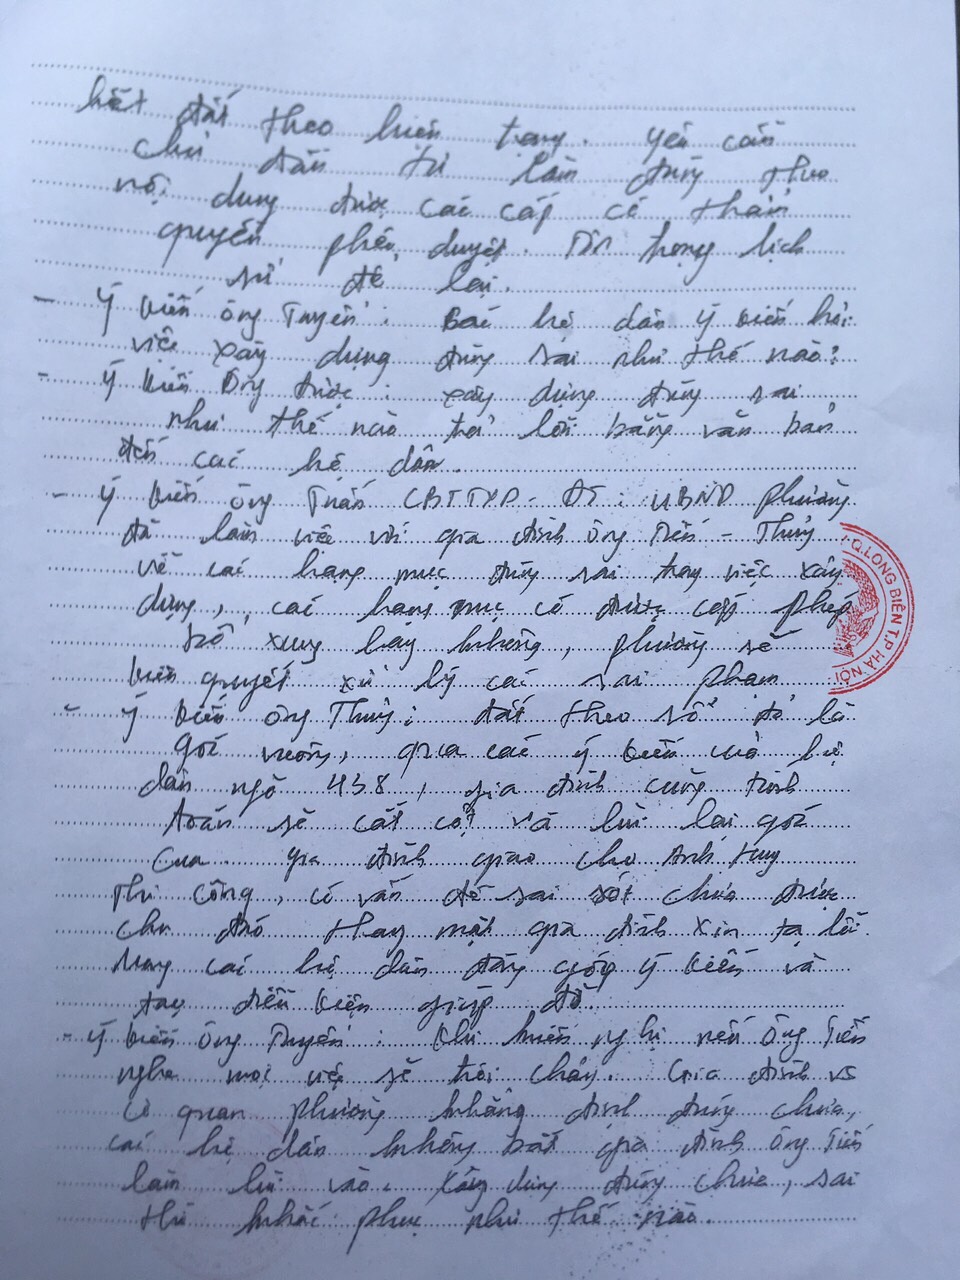 hết đất theo hiện trạng. Yêu cầu
chủ đầu tư làm đúng theo
nội dung được các cấp có thẩm
quyền phê duyệt. Tôn trọng lịch
sử để lại.
- Ý kiến ông Tuyến: Các hộ dân ý kiến hỏi
việc xây dựng đúng sai như thế nào?
- Ý kiến ông Được: xây dựng đúng sai
như thế nào trả lời bằng văn bản
đến các hộ dân.
- Ý kiến ông Tuấn CBTTXD-ĐT: UBND phường
đã làm việc với gia đình ông Tiến - Thủy
về các hạng mục đúng sai trong việc xây
dựng, các hạng mục có được cấp phép
bổ xung hay không, phường sẽ
kiên quyết xử lý các sai phạm
- Ý kiến ông Thủy: đất theo sổ đỏ là
góc vuông, qua các ý kiến của hộ
dân ngõ 438, gia đình cũng tính
toán sẽ cắt cột và lùi lại góc
Của gia đình giao cho Anh Huy
Thi công, có vấn đề sai sót chưa được
chu đáo thay mặt gia đình xin tạ lỗi
mong các hộ dân đóng góp ý kiến và
tạo điều kiện giúp đỡ
- Ý kiến ông Tuyến: Khi kiến nghị nếu ông Tiến
nghe mọi việc sẽ trôi chảy. Gia đình và
Cơ quan phường khẳng định đúng chưa,
các hộ dân không bắt gia đình ông Tiến
làm lùi vào. Xây dựng đúng chưa, sai
thì khắc phục như thế nào.
Q. LONG BIÊN T.P HÀ NỘI